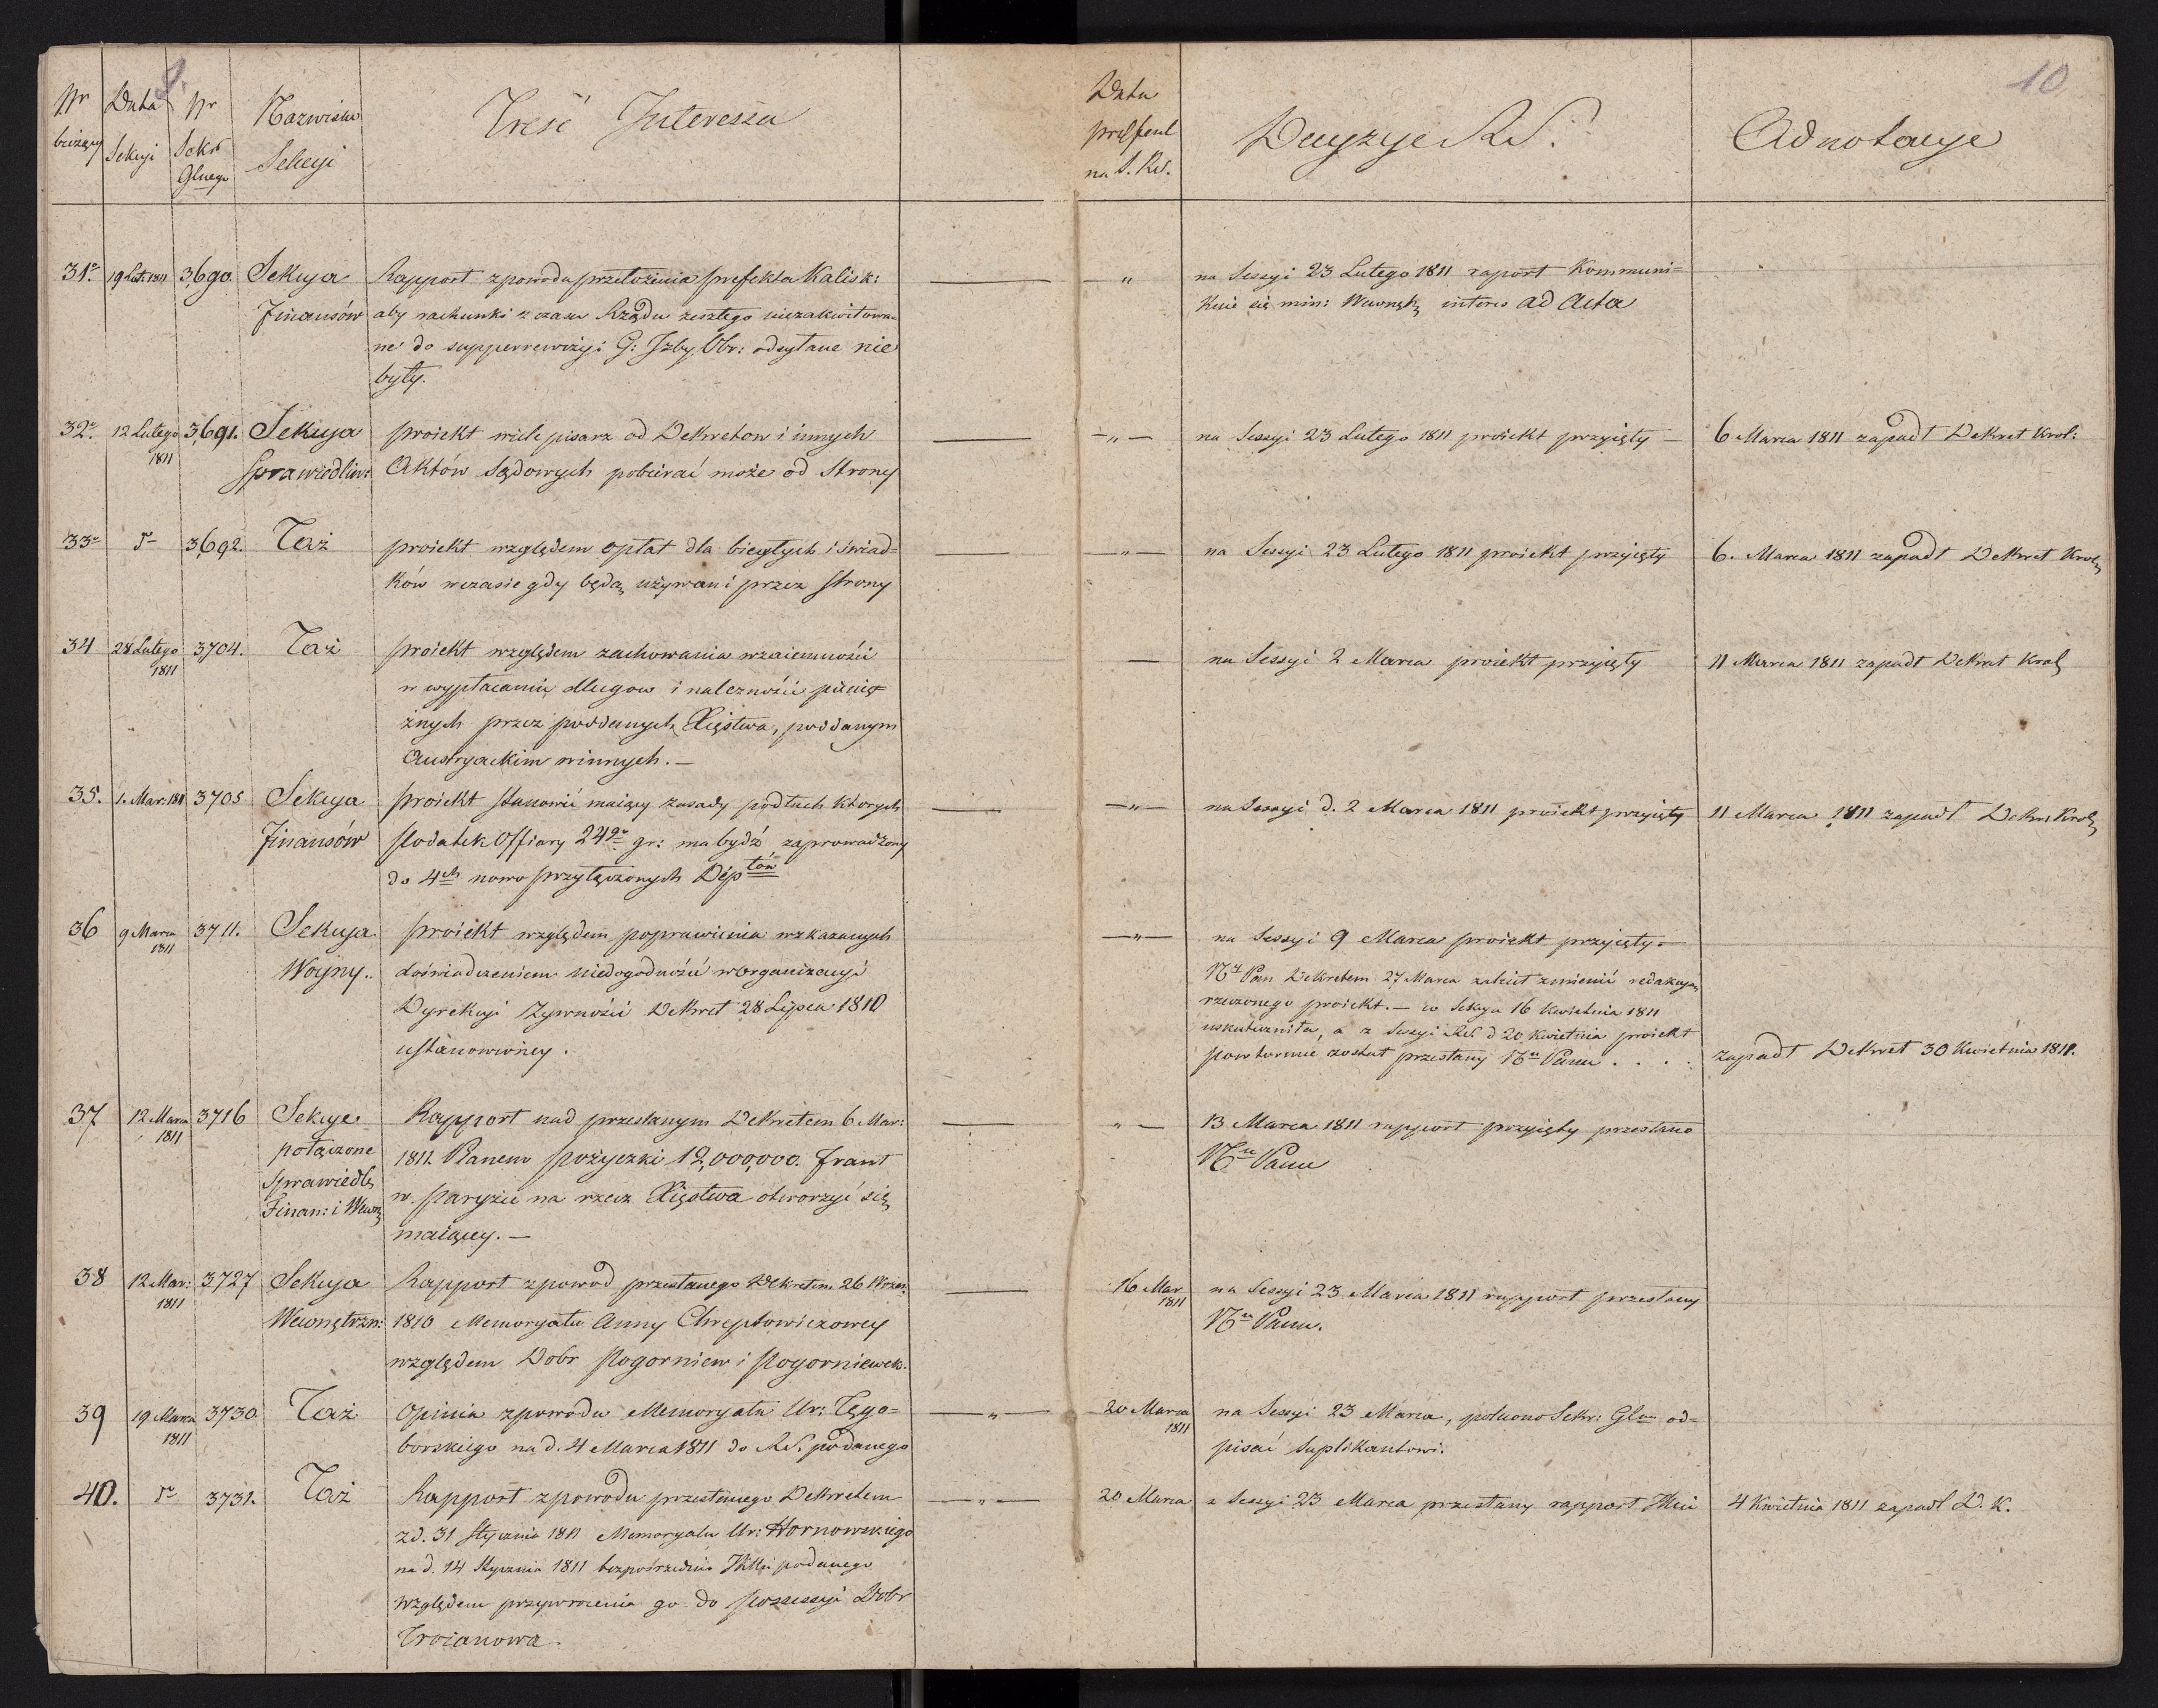 10
Nr bieżący
Data Sekcyi
Nr Sekr Głnego
Nazwisko Sekcyi
Treść Interessu
Data present na S. RS.
Decyzye RS.
Adnotacye
31. 19 Lut: 1811 3,690. Sekcya Rapport z powodu przełożenia prefekta Kalisk: — „ na Sessyi 23 Lutego 1811 raport Kommuni=
Finansów aby rachunki z czasu Rządu zeszłego niezakwitowa= kuie się min: Wewnętz interes ad Acta
ne do supperrewizyi G: Izby Obr: odsyłane nie
były.
32. 12 Lutego 1811 3,691. Sekcya proiekt wiele pisarz od Dekretow i innych — – „ – na Sessyi 23 Lutego 1811 proiekt przyięty — 6 Marca 1811 zapadł Dekret Krol:
Sprawiedliw: Aktów Sądowych pobierać może od Strony
33 d– 3,692. Taż proiekt względem opłat dla biegłych i świad= — – „ – na Sessyi 23 Lutego 1811 proiekt przyięty 6. Marca 1811 zapadł Dekret Krol
ków w czasie gdy będą używani przez strony
34 28 Lutego 1811 3704. Taż proiekt względem zachowania wzaiemności — na Sessyi 2 Marca proiekt przyięty 11 Marca 1811 zapadł Dekret Krol
w wypłacaniu długow i należności pienię=
żnych przez poddanych Xięstwa, poddanym
Austryackim winnych. —
35. 1. Mar: 1811 3705 Sekcya proiekt stanowić maiący zasady podług ktorych — – „ – na Sessyi d. 2 Marca 1811 proiekt przyięty 11 Marca 1811 zapadł Dekr: Krol
Finansów podatek Offiary 24go gr: ma bydź zaprowadzony
do 4ch nowo przyłączonych Deptów
36 9 Marca 1811 3711. Sekcya proiekt względem poprawienia wzkazanych – „ – na Sessyi 9 Marca proiekt przyięty –
Woyny.. doświadczeniem niedogodności w organizacyi Nu Pan Dekretem 27 Marca zalecił zmienić redakcyą
Dyrekcyi Żywności Dekret 28 Lipca 1810 rzeczonego proiekt. — co Sekcya 16 Kwietnia 1811
ustanowioney. uskuteczniła, a z Sessyi RS. d 20 Kwietnia proiekt
powtornie został przesłany Nu Panu . . . . zapadł Dekret 30 Kwietnia 1811.
37 12 Marca 1811 3716 Sekcye Rapport nad przesłanym Dekretem 6 Mar: — „ – 13 Marca 1811 rapport przyięty przesłano
połączone 1811 Planem pożyczki 12,000,000. frank Nu Panu
Sprawiedl w Paryżu na rzecz Xięstwa otworzyć się
Finan: i Wewn maiącey. —
38 12 Mar: 1811 3727 Sekcya Rapport z powod przesłanego Dekretem 26 Wrzes: — 16 Mar 1811 na Sessyi 23 Marca 1811 rapport przesłany
Wewnętrzn: 1810 Memoryału Anny Chreptowiczowey Nu Panu.
względem Dobr Pogorniew i Pogorniewek.
39 19 Marca 1811 3730 Taż Opinia z powodu Memoryału Ur: Tęgo= — „ — 20 Marca 1811 na Sessyi 23 Marca, polecono Sekr: Glmu od=
borskiego na d. 4 Marca 1811 do RS. podanego pisać Suplikantowi.
40. d– 3731. Taż Rapport z powodu przesłanego Dekretem — „ — 20 Marca z Sessyi 23 Marca przesłany rapport JKMci 4 Kwietnia 1811 zapadł D. K.
z d. 31 Stycznia 1811 Memoryału Ur: Hornowskiego
na d. 14 Stycznia 1811 bezpośrzednio podanego
względem przywrocenia go do possessyi Dobr
Troianowa.